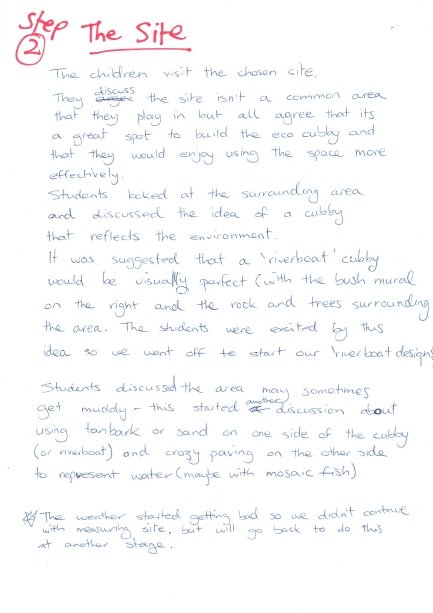 Step 2 The Site
The children visit the chosen site.
They discuss the site isn't a common area
that they play in but all agree that its
a great spot to build the eco cubby and
that they would enjoy using the space more
effectively.
Students looked at the surrounding area
and discussed the idea of a cubby
that reflects the environment.
It was suggested that a 'riverboat' cubby
would be visually perfect (with the bush mural
on the right and the rock and trees surrounding
the area. The students were excited by this
idea so we went off to start our 'riverboat designs'
Students discussed the area may sometimes
get muddy - this started another discussion about
using tanbark or sand on one side of the cubby
(or riverboat) and crazy paving on the other side
to represent water (maybe with mosaic fish)
* The weather started getting bad so we didn't continue
with measuring site, but will go back to do this
at another stage.